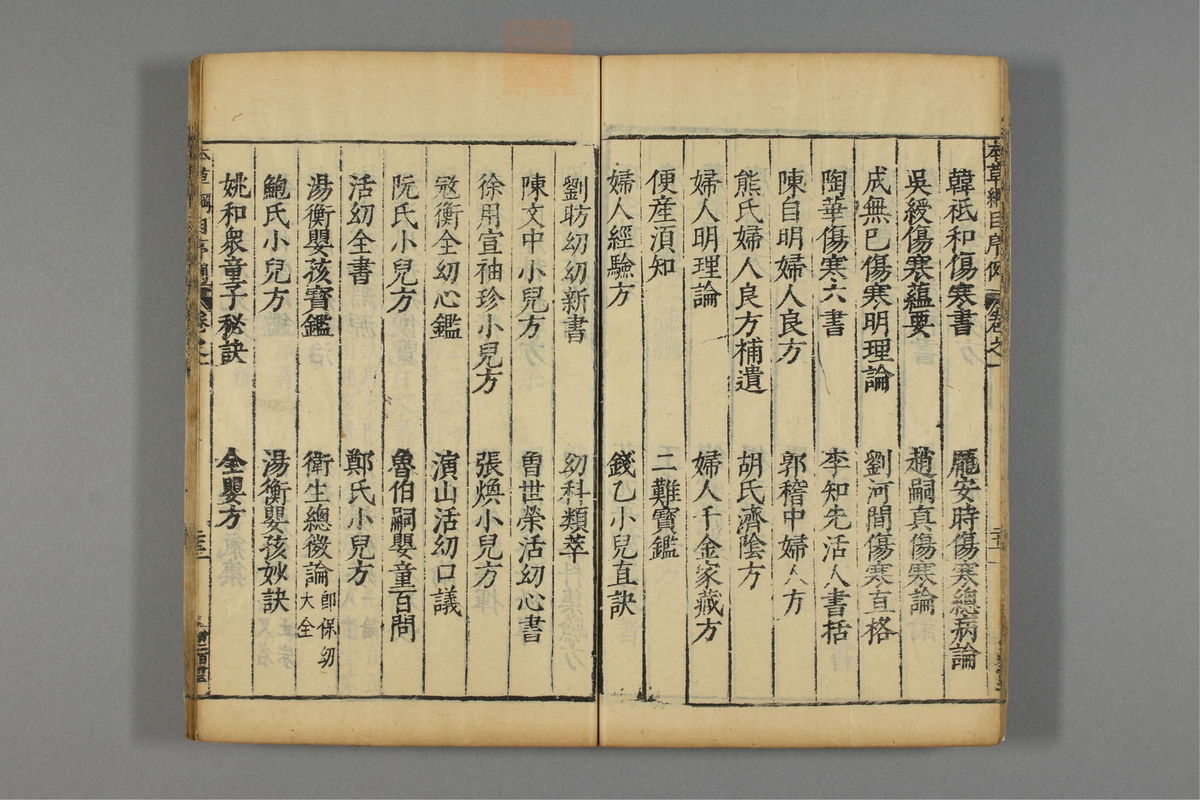 韓祗和傷寒書
龐安時傷寒總病論
吳綬傷寒蘊要
趙嗣真傷寒論
成無巳傷寒明理論
劉河間傷寒直格
陶華傷寒六書
李知先活人書括
陳自明婦人良方
郭稽中婦人方
熊氏婦人良方補遺
胡氏濟陰方
婦人明理論
婦人千金家藏方
便産須知
二難寶鑑
婦人經驗方
錢乙小兒直訣
劉昉幼幼新書
幼科類萃
陳文中小兒方
魯世榮活幼心書
徐用宣袖珍小兒方
張煥小兒方
寇衡全幼心鑑
演山活幼口議
阮氏小兒方
魯伯嗣嬰童百問
活幼全書
鄭氏小兒方
湯衡嬰孩寶鑑
衛生總微論即保幼大全
鮑氏小兒方
湯衡嬰孩妙訣
姚和衆童子秘訣
全嬰方
本草綱目序例
卷之一